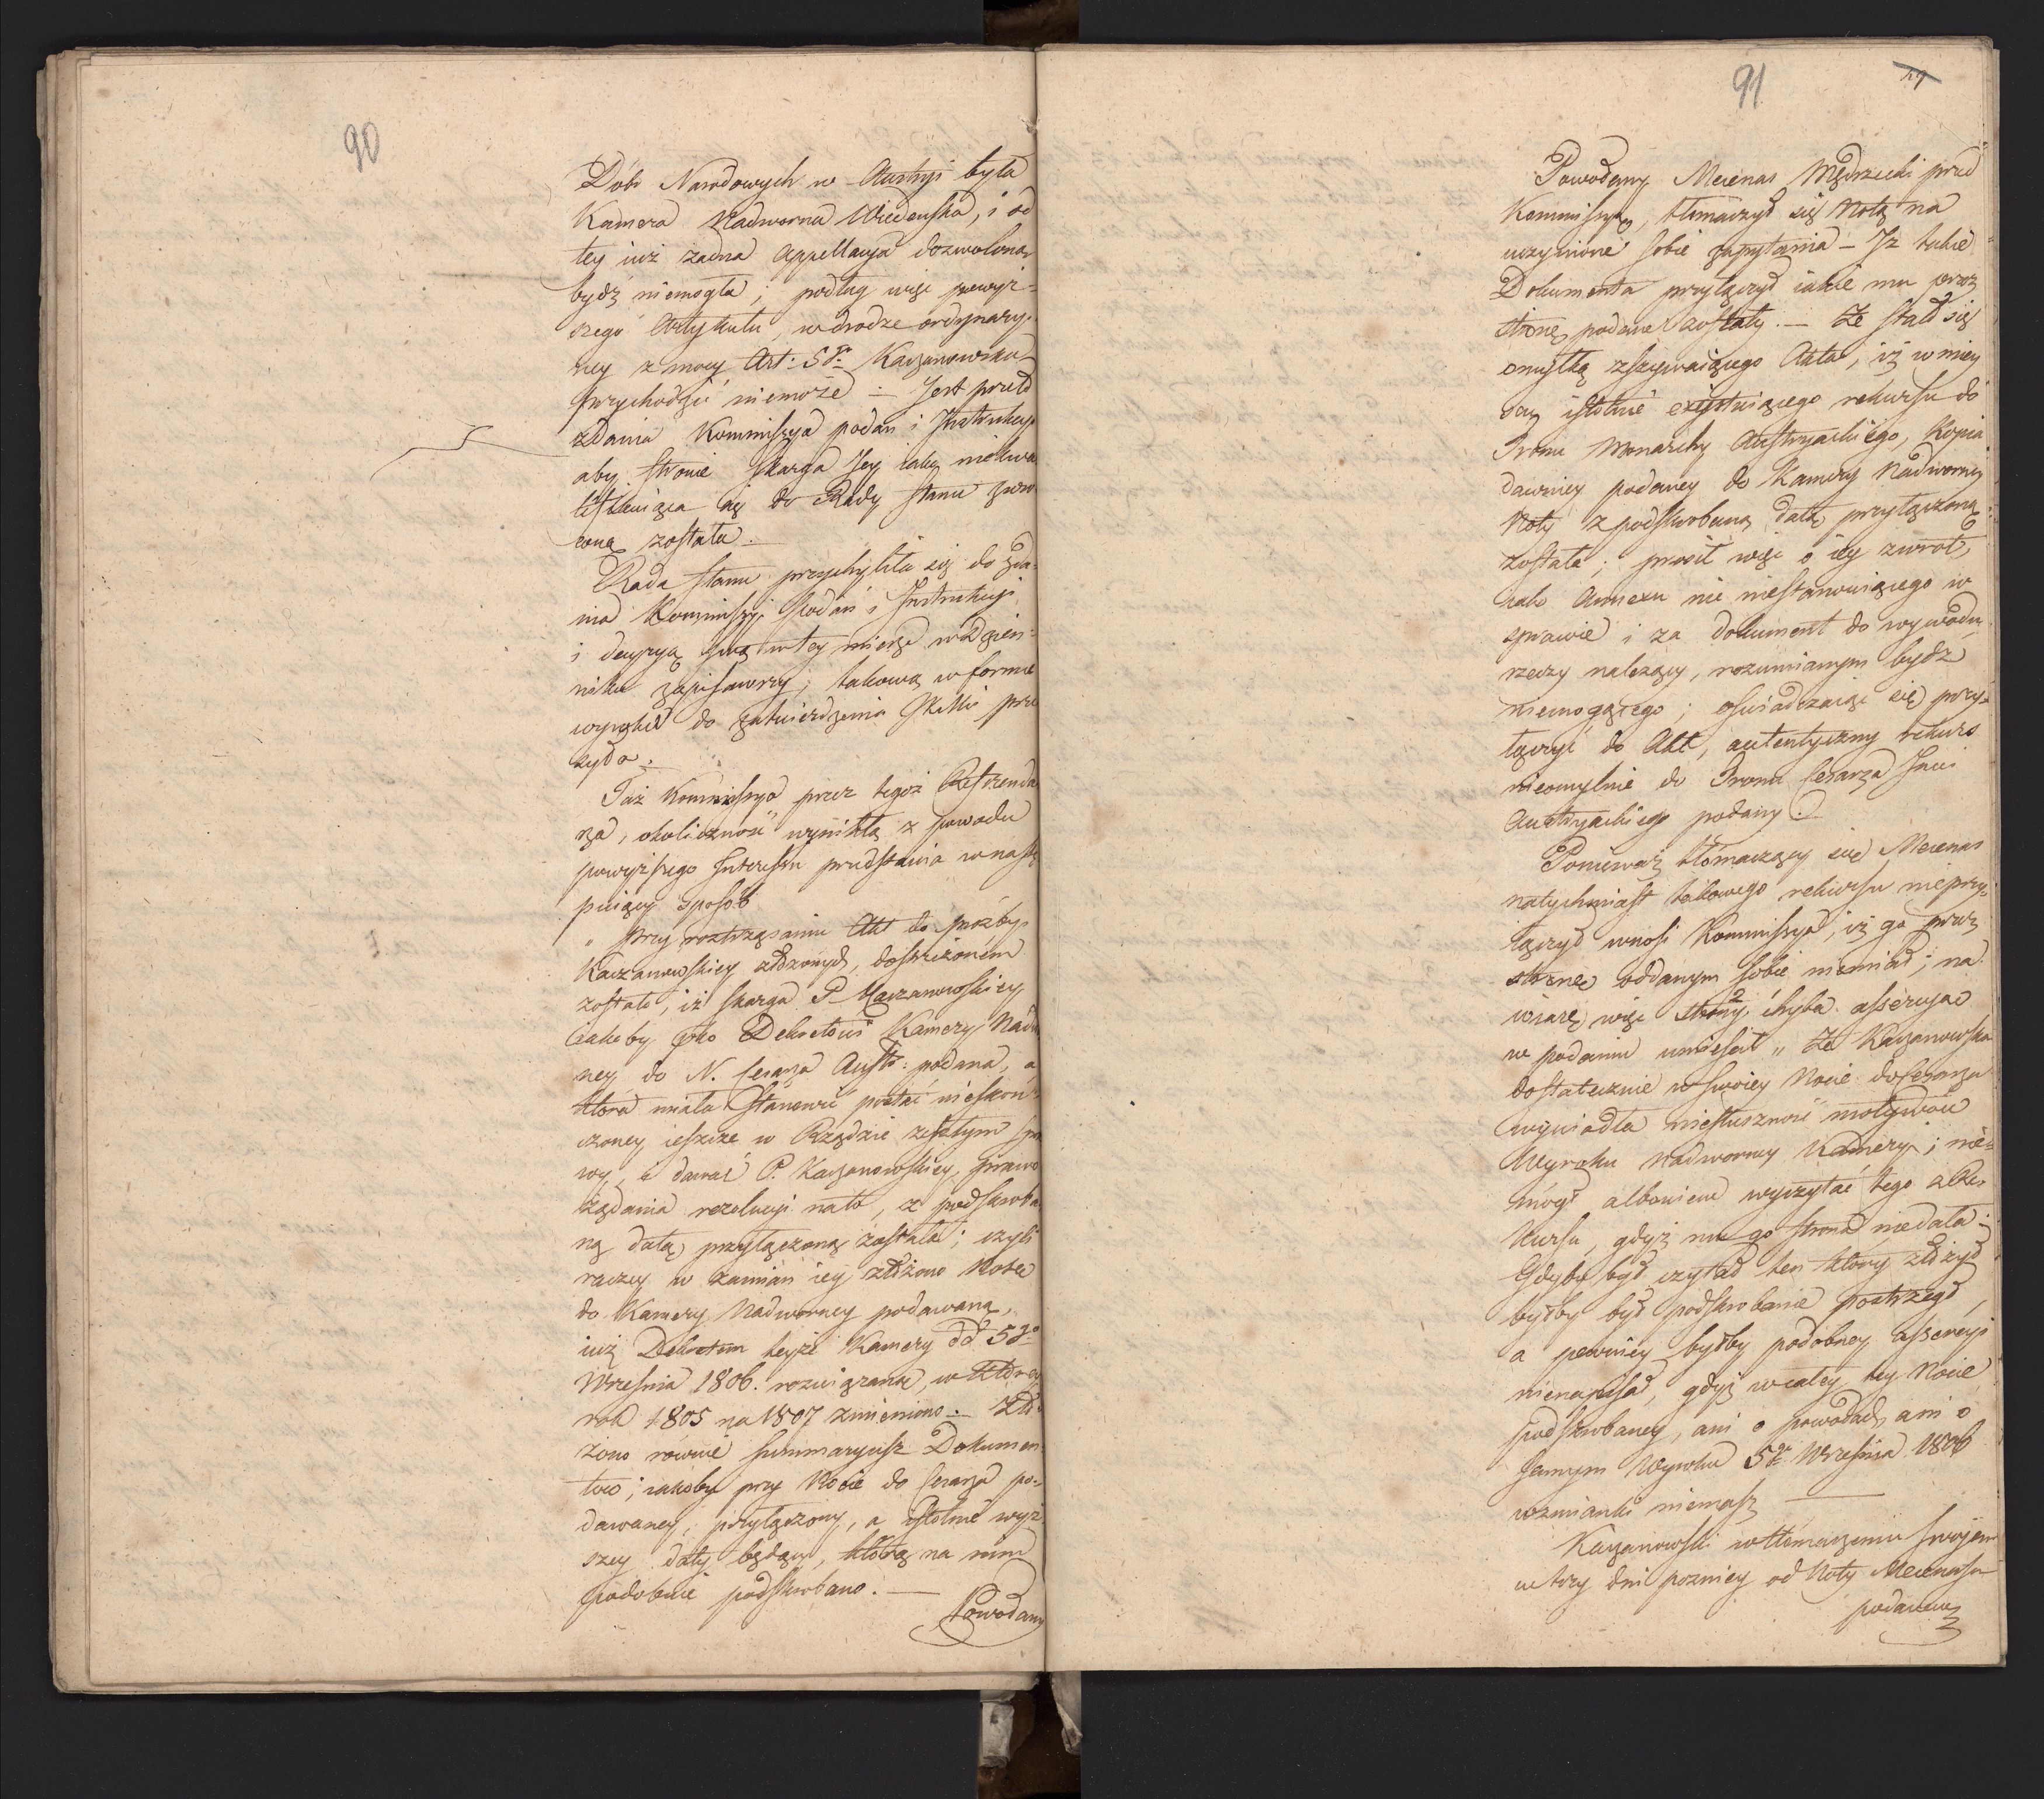 90
Dóbr Narodowych w Austryi była
Kamera Nadworna Wiedeńska, i od
tey iuż żadna Appellacya dozwolona
bydź niemogła; podług więc powyż-
szego Artykułu, w drodze ordynaryi-
ney z mocy Art: 58. Kaczanowska
przychodzić niemoże — Jest przeto
zdania Kommissya podań i Instrukcyi
aby Stronie skarga Jey iako niekwa
lifikuiąca się do Rady Stanu zwró
coną została.
Rada Stanu przychyliła się do zda-
nia Kommissyi Podań i Instrukcyi
i decyzyą swą w tey mierze w dzien-
niku zapisawszy, takową w formie
wyroku do zatwierdzenia JKMci prze
syła.
Taż Kommissya przez tegoż Referenda
rza, okoliczność wynikłą z powodu
powyższego Interessu przedstawia w nastę
puiący sposób
„ Przy roztrząsaniu Akt do prożby
Kaczanowskiey złożonych, dostrzeżonem
zostało, iż skarga P. Kaczanowskiey
iakoby pko Dekretowi Kamery Nadw
ney do N. Cesarza Austr: podana, a
która miała stanowić postać nieskoń-
czoney ieszcze w Rządzie zeszłym spra
wy, i dawać P. Kaczanowskiey, prawo
żądania rezolucyi na to, z podskroba
ną datą przyłączoną została; czyli
raczey w zamian iey złożono Notę
do Kamery Nadworney podawaną,
iuż Dekretem teyże Kamery dd 5go
Września 1806. rozwiązaną, w którey
rok 1805 na 1807 zmieniono. — Zło
żono rownie Summaryusz Dokumen
tow; iakoby przy Nocie do Cesarza po-
dawaney, przyłączony, a istotnie wyż
szey daty będący, którą na nim
podobnie podskrobano. —
Powodany
91
Powodany Mecenas Mędrzecki przed
Kommissyą, tłomaczył się Notą na
uczynione sobie zapytania — Iż takie
Dokumenta przyłączył iakie mu przez
stronę podane zostały. — Że stało się
omyłką zszywaiącego Akta, iż w miey
scu istotnie exystuiącego rekursu do
Tronu Monarchy Austryackiego, Kopia
dawniey podaney do Kamery Nadworney
Noty z podskrobaną datą przyłączoną
została; prosił więc o iey zwrot,
iako Annexu nic niestanowiącego w
sprawie i za dokument do wywodu
rzeczy należący, rozumianym bydź
niemogącego; oświadczaiąc się przy-
łączyć do Akt, autentyczny rekurs
nieomylnie do Tronu Cesarza Jmci
Austryackiego podany.
Ponieważ tłómaczący się Mecenas
natychmiast takowego rekursu nieprzy-
łączył wnosi Kommissya, iż go przez
stronę oddanym sobie niemiał; na
wiarę więc Strony chyba asseruiąc
w podaniu umieścił „ Że Kaczanowska
dostatecznie w swoiey Nocie do Cesarza
wywiodła niesłuszność motywów
Wyroku Nadworney Kamery; nie-
mógł albowiem wyczytać tego z Re-
kursu, gdyż mu go Strona niedała;
Gdyby był czytał ten który złożył
byłby był podskrobanie postrzegł,
a pewniey byłby podobney assercyi
nienapisał, gdyż w całey tey Nocie
podskrobaney, ani o powodach, ani o
samym Wyroku 5go Września 1806
wzmianki niemasz —
Kaczanowski w tłomaczeniu swojem
w trzy dni pozniey od Noty Mecenasa
podanem